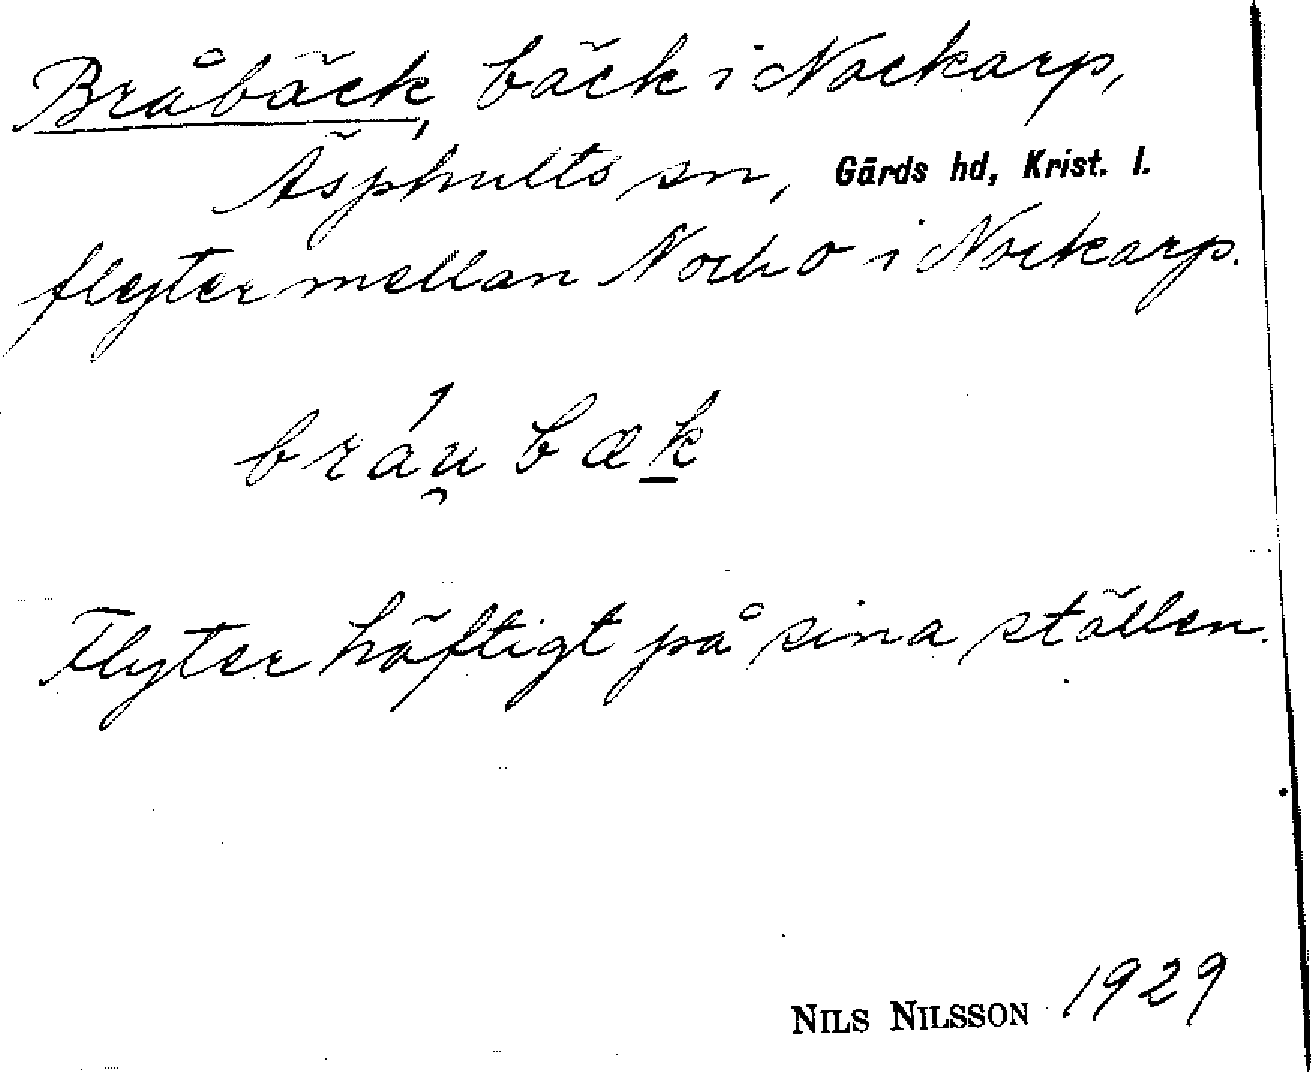 Bråbäck, bäck i Nockarp,
Äsphults sn, Gärds hd, Krist. l.
flyter mellan N och O i Nockarp.
bráu̯bæk
Flyter häftigt på sina ställen.
NILS NILSSON 1929